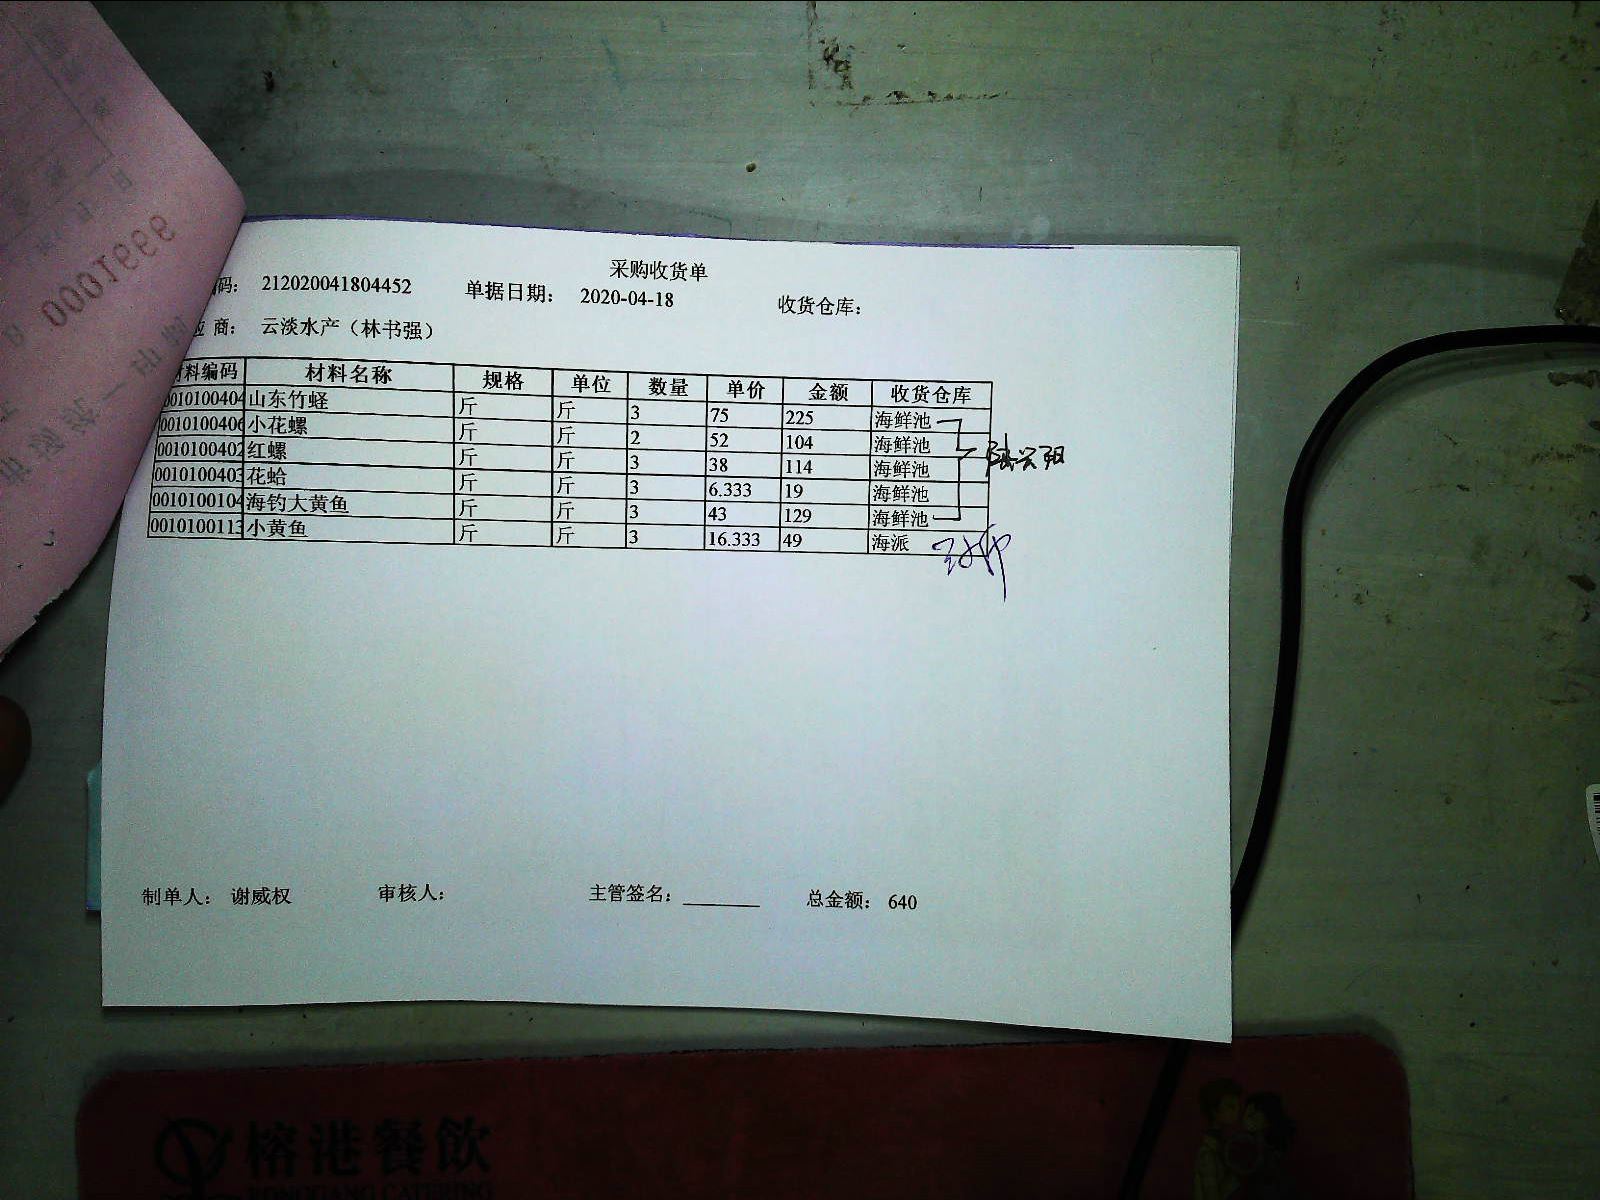 采购收货单
码： 212020041804452 单据日期： 2020-04-18 收货仓库：
应 商： 云淡水产（林书强）
材料编码 材料名称 规格 单位 数量 单价 金额 收货仓库
0010100404 山东竹蛏 斤 斤 3 75 225 海鲜池
0010100406 小花螺 斤 斤 2 52 104 海鲜池
0010100402 红螺 斤 斤 3 38 114 海鲜池
0010100403 花蛤 斤 斤 3 6.333 19 海鲜池
0010100104 海钓大黄鱼 斤 斤 3 43 129 海鲜池
0010100113 小黄鱼 斤 斤 3 16.333 49 海派
制单人： 谢威权 审核人： 主管签名： 总金额： 640
0001999
榕港餐飲
RONGGANG CATERING